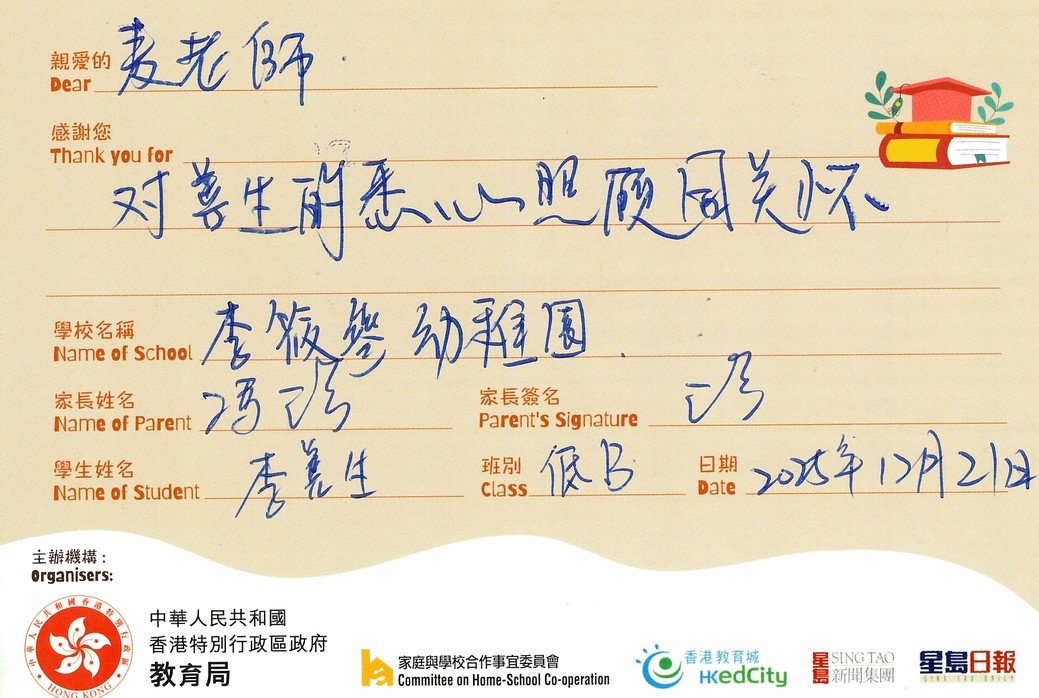 親愛的 麦老師
Dear
感謝您
Thank you for
对善生前悉心照顾同关怀
學校名稱 李筱 幼稚園
Name of School
家長姓名 冯 家長簽名
Name of Parent Parent's Signature
學生姓名 李善生 班別 低B 日期 2025年12月21日
Name of Student Class Date
主辦機構：
Organisers:
中華人民共和國香港特別行政區
HONG KONG
中華人民共和國
香港特別行政區政府
教育局
家庭與學校合作事宜委員會
Committee on Home-School Co-operation
香港教育城
HKedCity
星島 SING TAO
新聞集團
星島日報
SING TAO DAILY